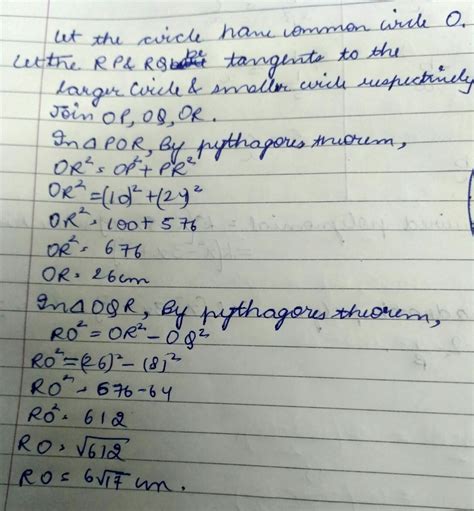 Let the circle have common circle O.
Let the RP & RQ be tangents to the
larger circle & smaller circle respectively
Join OP, OQ, OR.
In △POR, By pythagores theorem,
OR² = OP² + PR²
OR² = (10)² + (24)²
OR² = 100 + 576
OR² = 676
OR = 26cm
In △OQR, By pythagores theorem,
RO² = OR² - OQ²
RO² = (26)² - (8)²
RO² = 676 - 64
RO² = 612
RO = √612
RO = 6√17 cm.